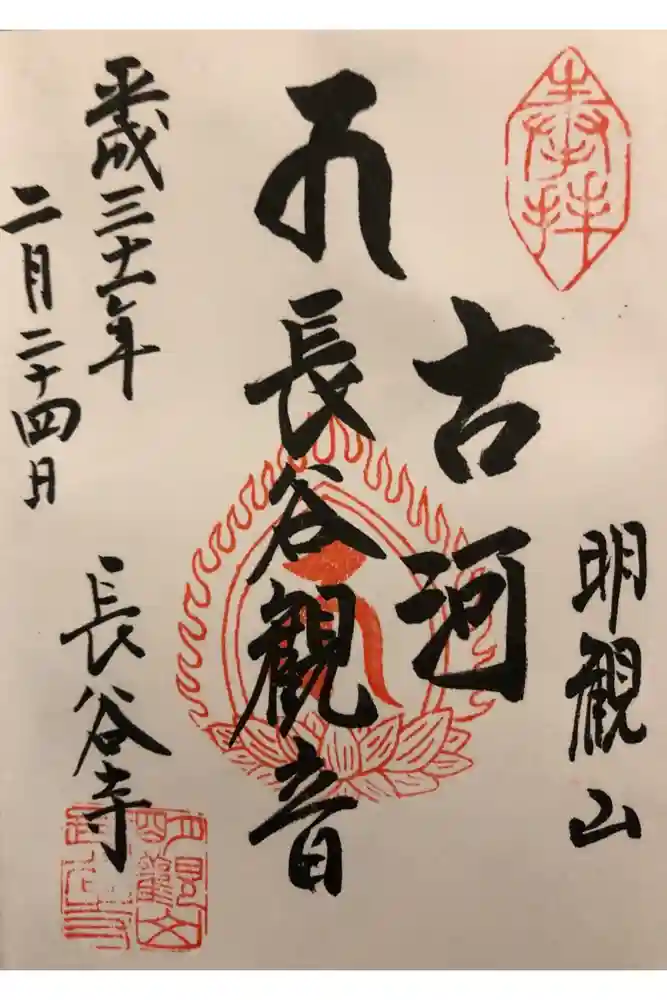 奉拝
明観山
古河
長谷観音
長谷寺
平成三十一年
二月二十四日